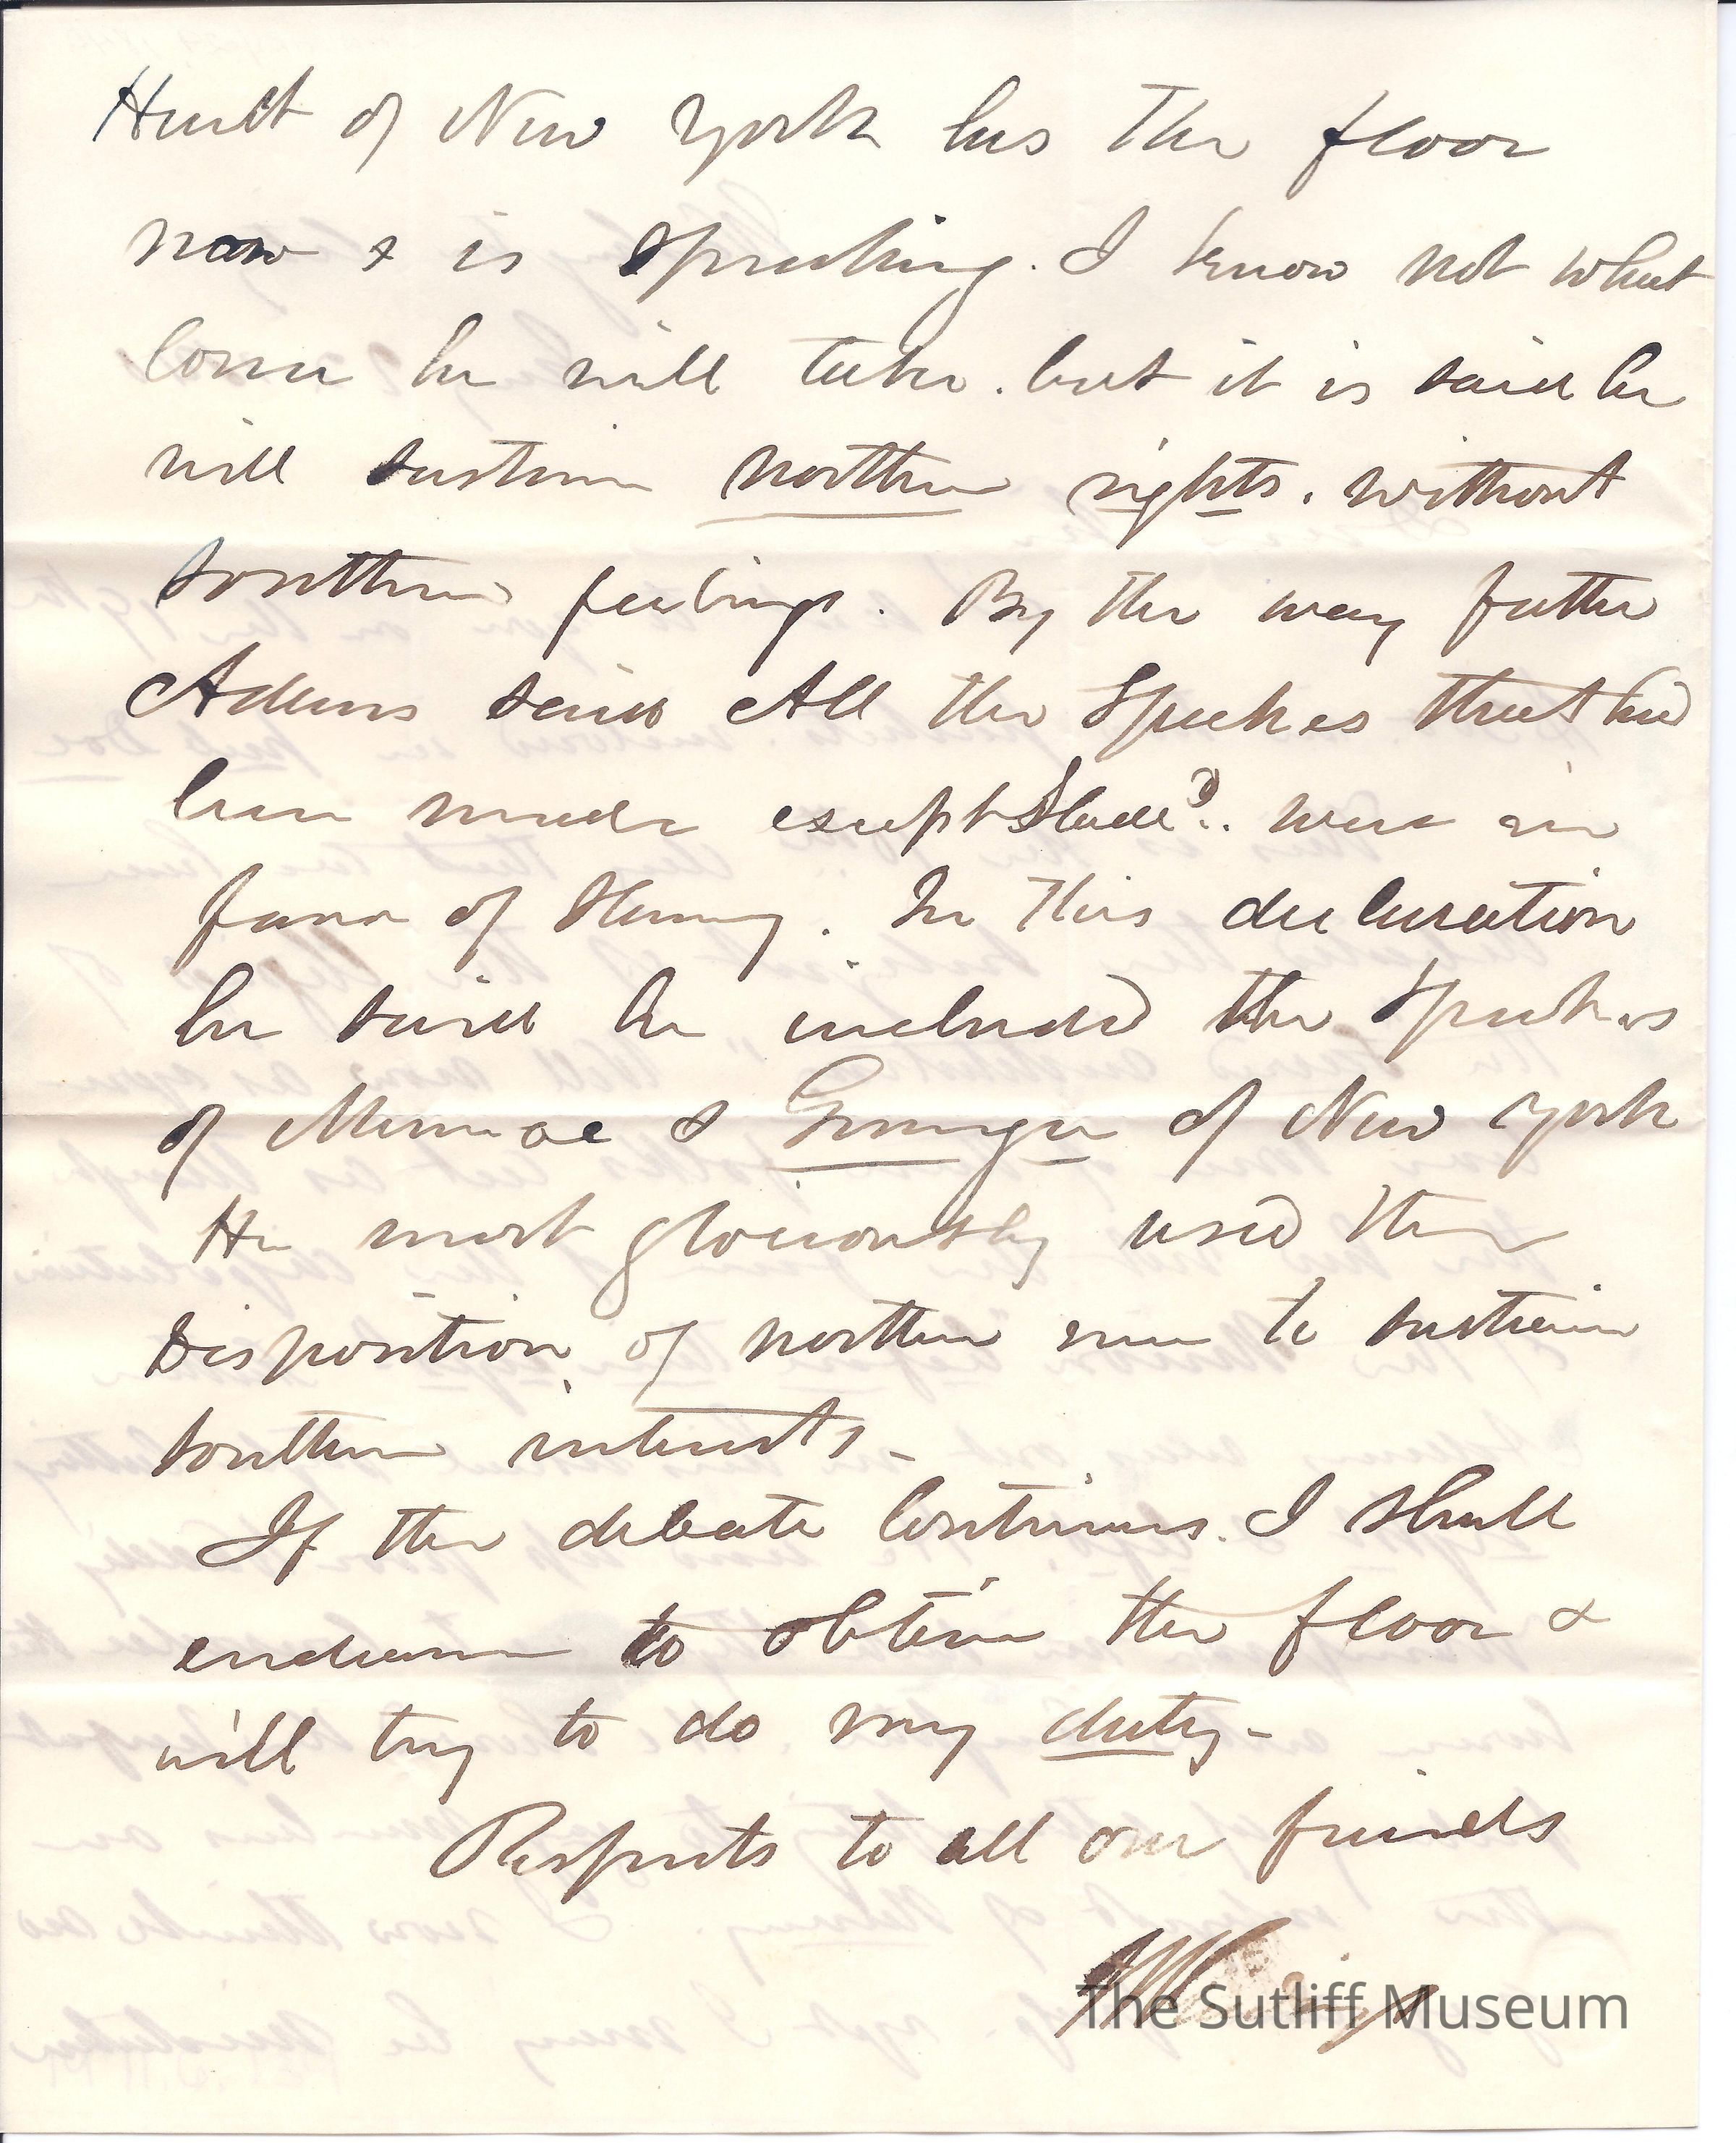 Hunt of New York has the floor
now & is speaking. I know not what
he will take. but it is said he
will sustain northern rights. without
southern feelings. By the way father
Adams said All the Speeches that had
been made except Slade's. were in
favor of Henry. In this declaration
he said he included the Speeches
of & Granger of New York
He most gloriously used the
Disposition of northern men to sustain
southern interests -
If the debate continues. I shall
endeavor to obtain the floor &
will try to do my duty -
Respects to all our friends
The Sutliff Museum